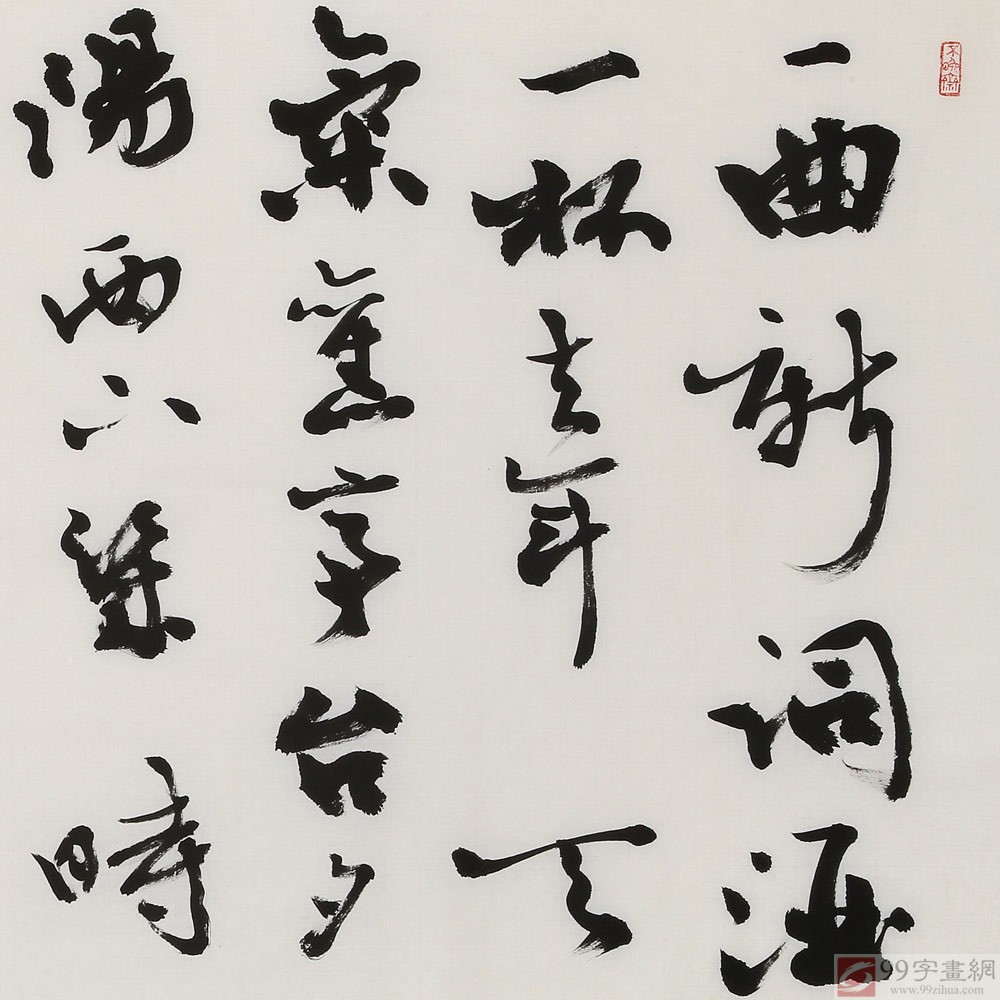 一曲新詞酒
一杯去年天
氣舊亭台夕
陽西下幾時
99字畫網
www.99zihua.com